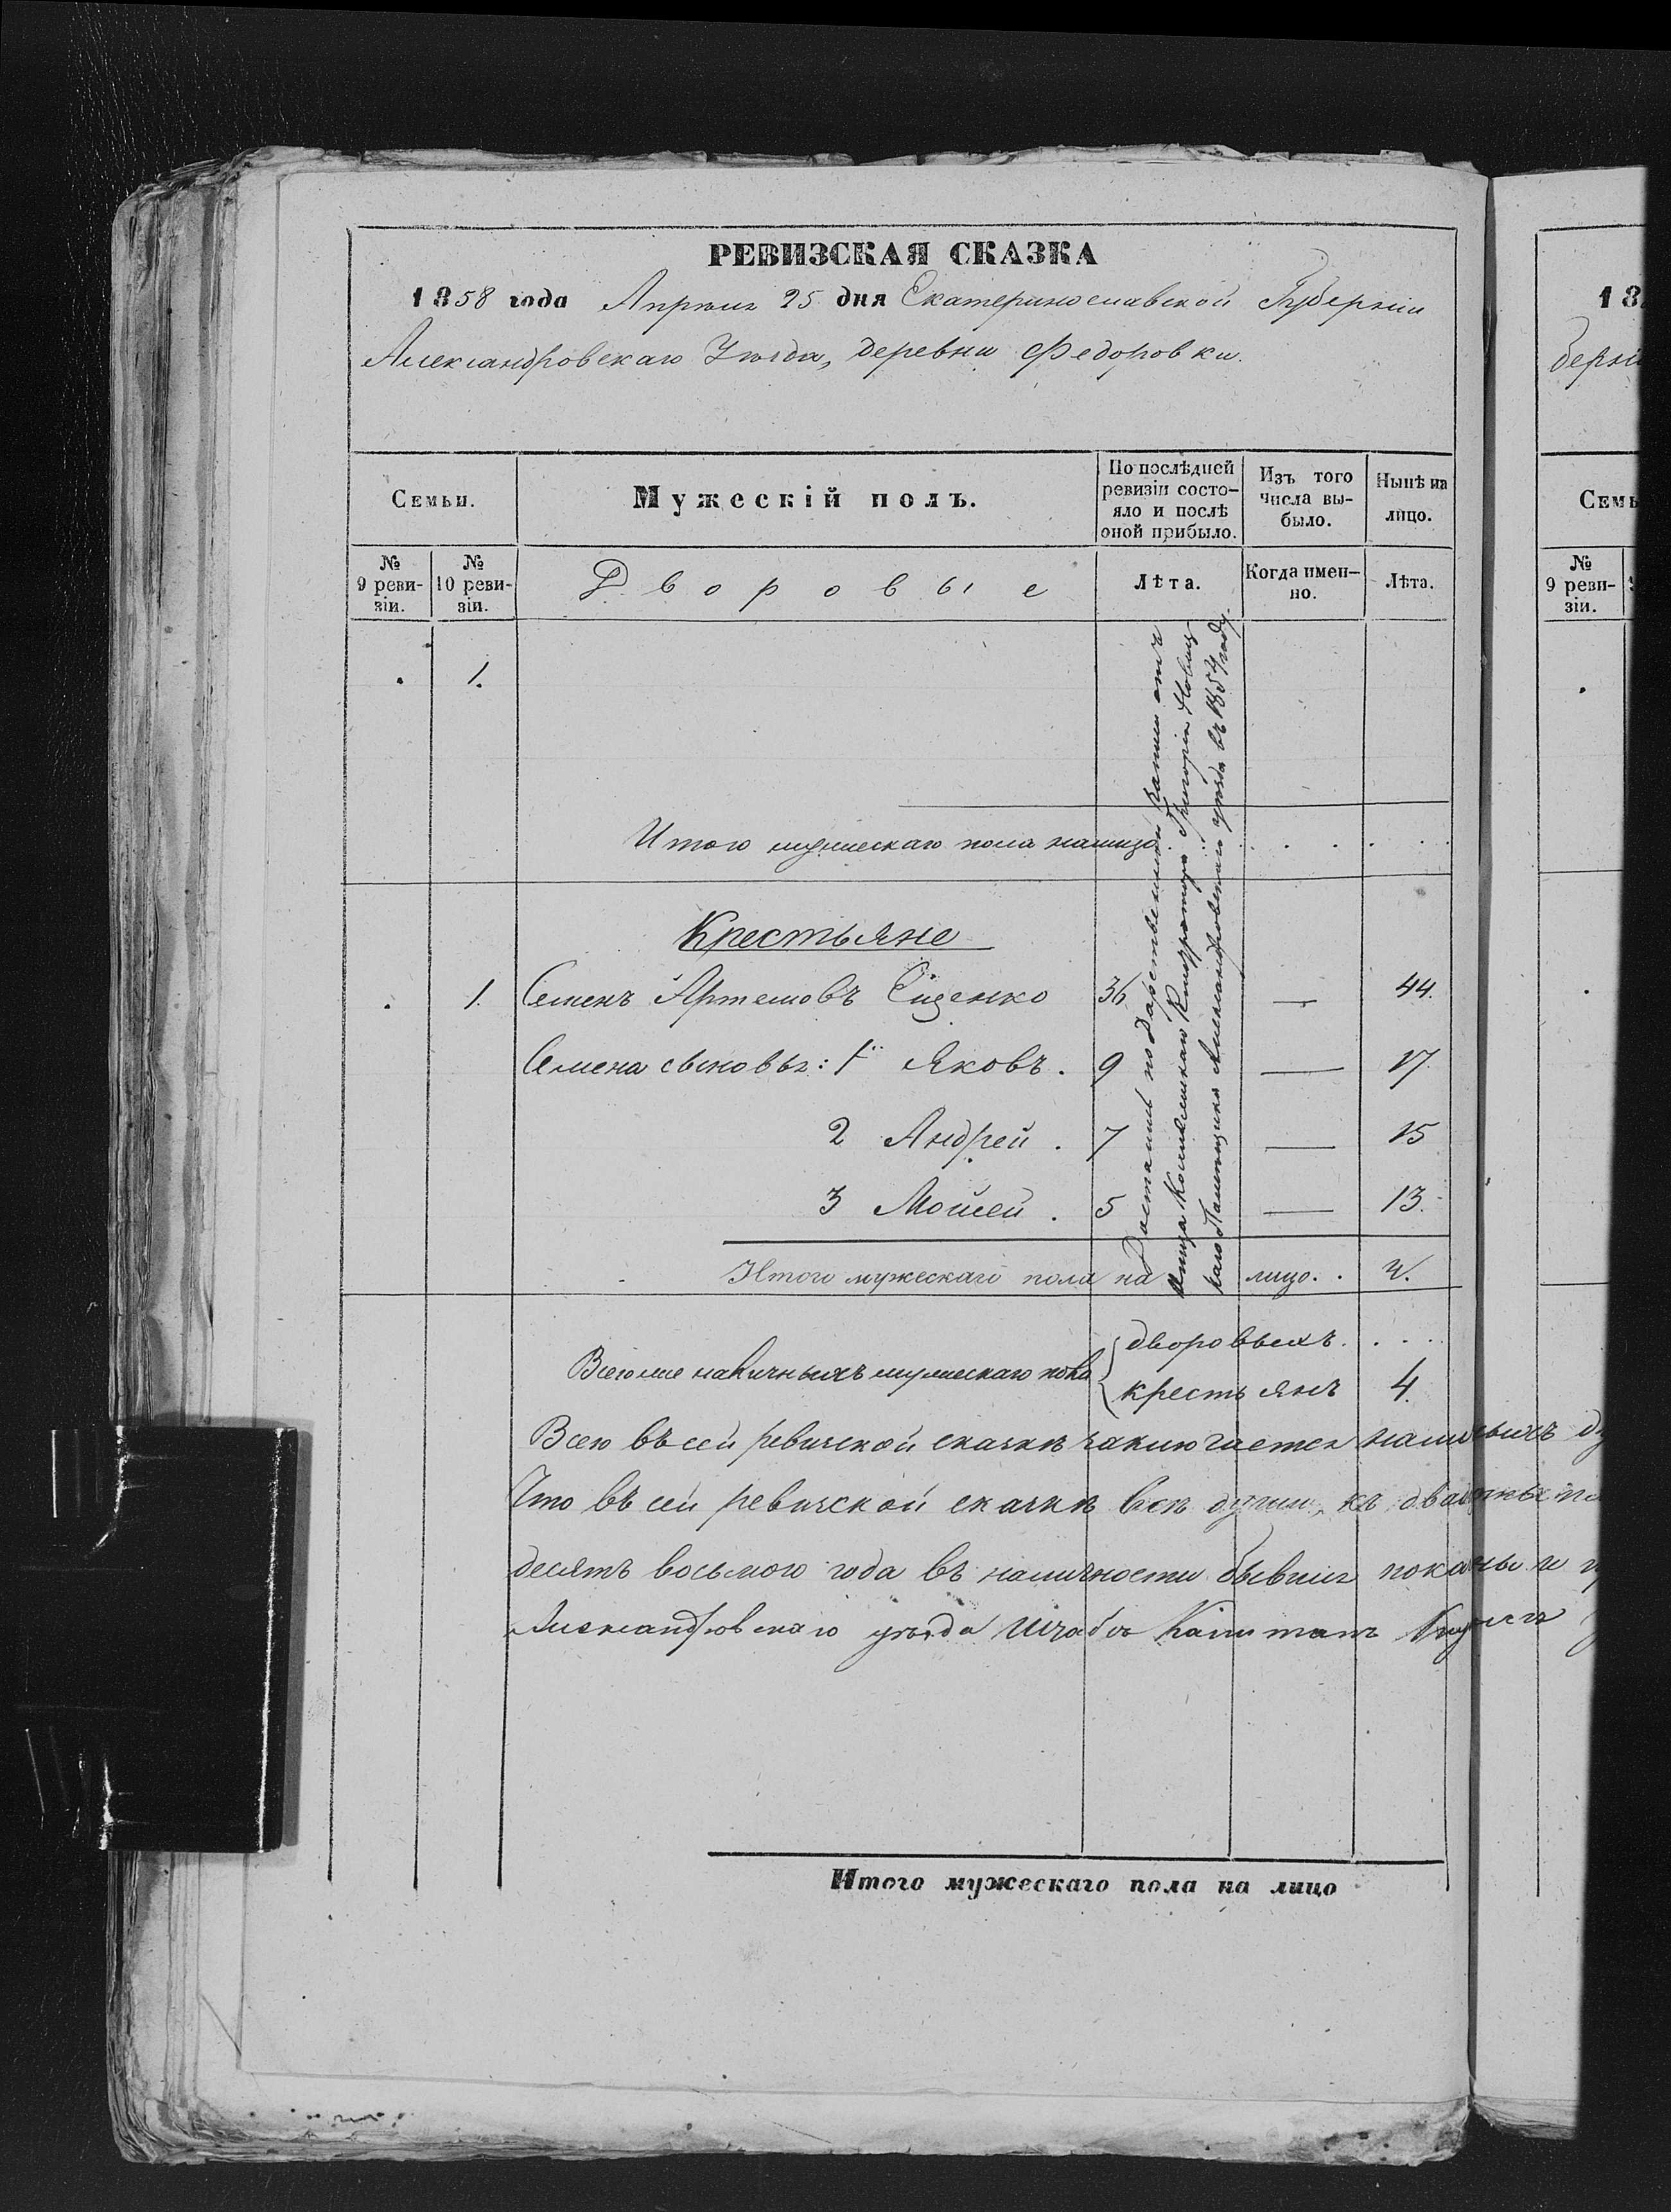 РЕВИЗСКАЯ СКАЗКА
1858 года Апрѣля 25 дня Екатеринославской Губерніи
Александровскаго Уѣзда, деревни Федоровки.
Семьи.
Мужескій полъ.
По послѣдней ревизіи состо-
яло и послѣ
оной прибыло.
Изъ того
числа вы-
было.
Нынѣ на
лицо.
№
9 реви-
зіи.
№
10 реви-
зіи.
Дворовые
Лѣта.
Когда имен-
но.
Лѣта.
. 1.
Итого мужескаго пола налицо . . . . . .
Крестьяне
. 1. Семенъ Артемовъ Сиденко 36 — 44.
Семена сыновья: 1й Яковъ. 9 — 17
2 Андрей. 7 — 15
3 Мойсей. 5 — 13.
Достались по дарственной записи отъ
отца Коллежскаго Григорія Новиц-
каго Помѣщика Александровскаго уѣзда въ 1854 году.
Итого мужескаго пола на лицо. . 4.
Всего же наличныхъ мужескаго пола
дворовыхъ. . . .
крестьянъ 4.
Всего въ сей ревизской сказкѣ заключается наличныхъ
Что въ сей ревизской сказкѣ всѣ души, къ
десять восьмого года въ наличности бывшія показаны и
Александровскаго уѣзда Штабсъ Капитанъ
Итого мужескаго пола на лицо
18
берніи
Семь
№
9 реви-
зіи.